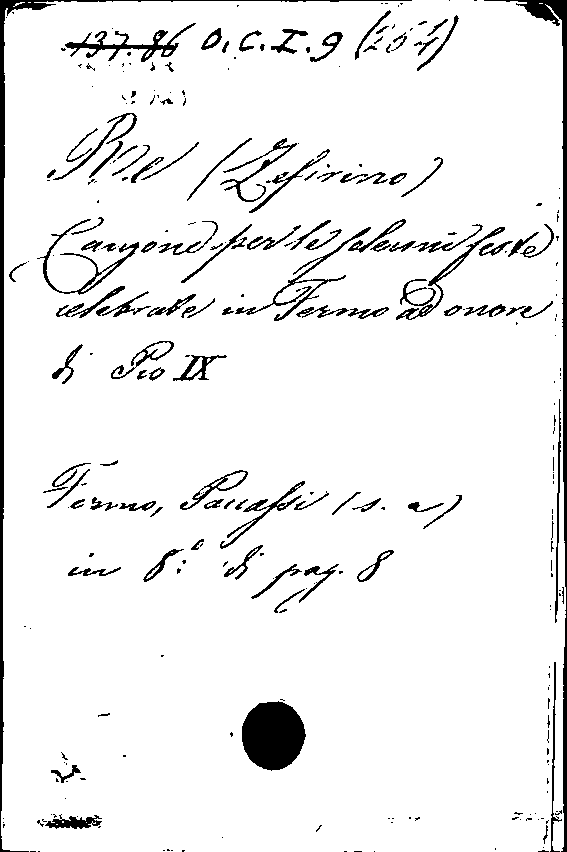 137.86 O.C.I.9 (254)
Re (Zefirino)
Canzone per le solenni feste
celebrate in Fermo ad onore
di Pio IX
Fermo, Paccassi (s. a)
in 8.° di pag. 8